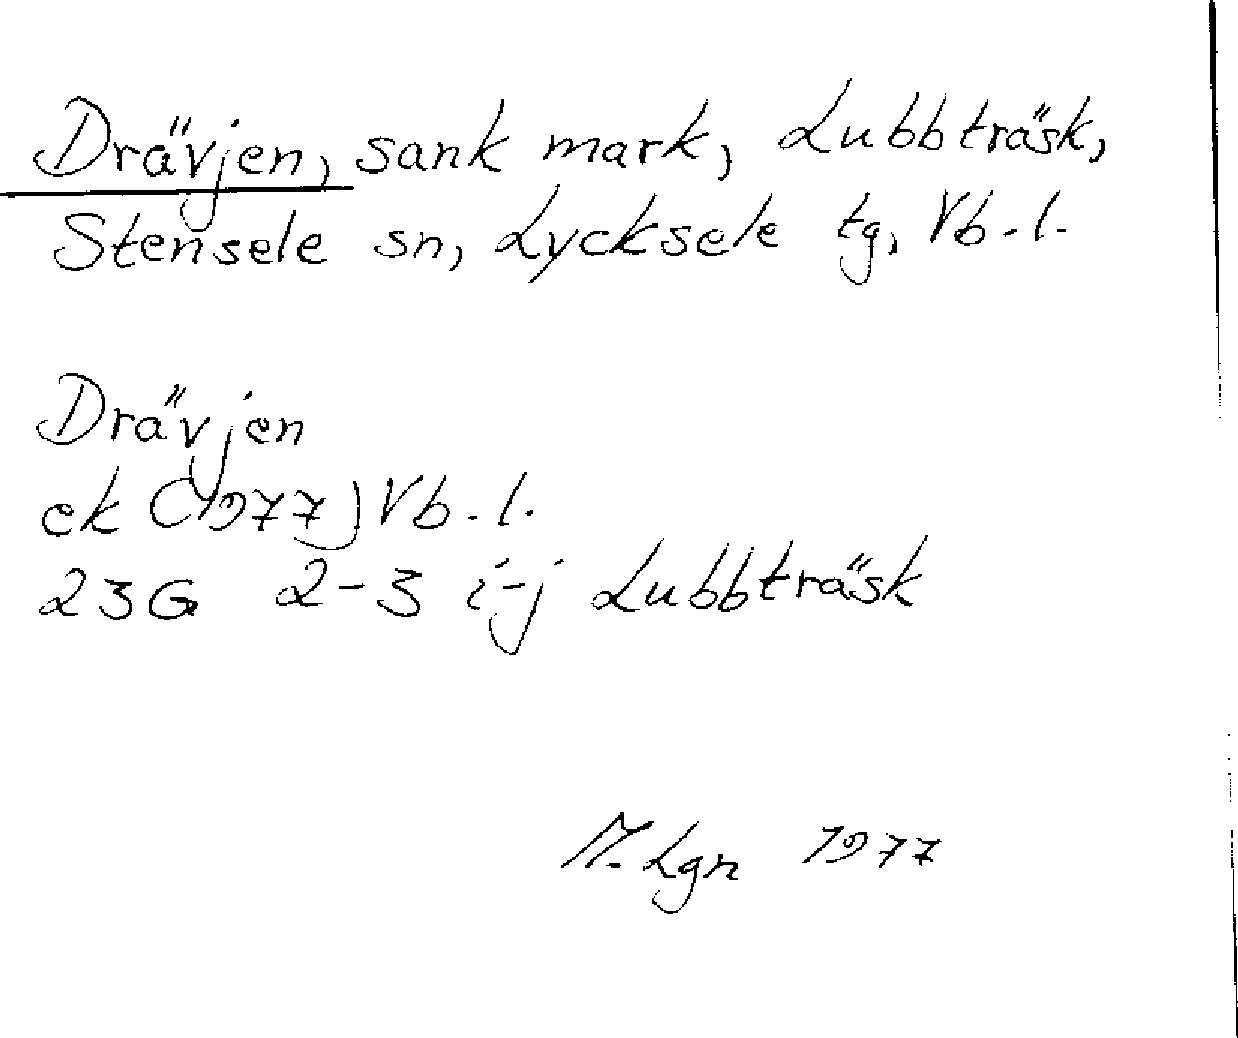 Drävjen, sank mark, Lubbträsk,
Stensele sn, Lycksele tg, Vb. l.
Drävjen
ek (1977) Vb. l.
23G 2-3 i-j Lubbträsk
M. Lgn 1977